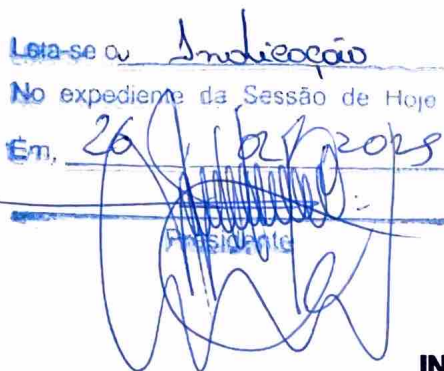 Leia-se a Indicação
No expediente da Sessão de Hoje
Em, 26 02 2025
Presidente
IN